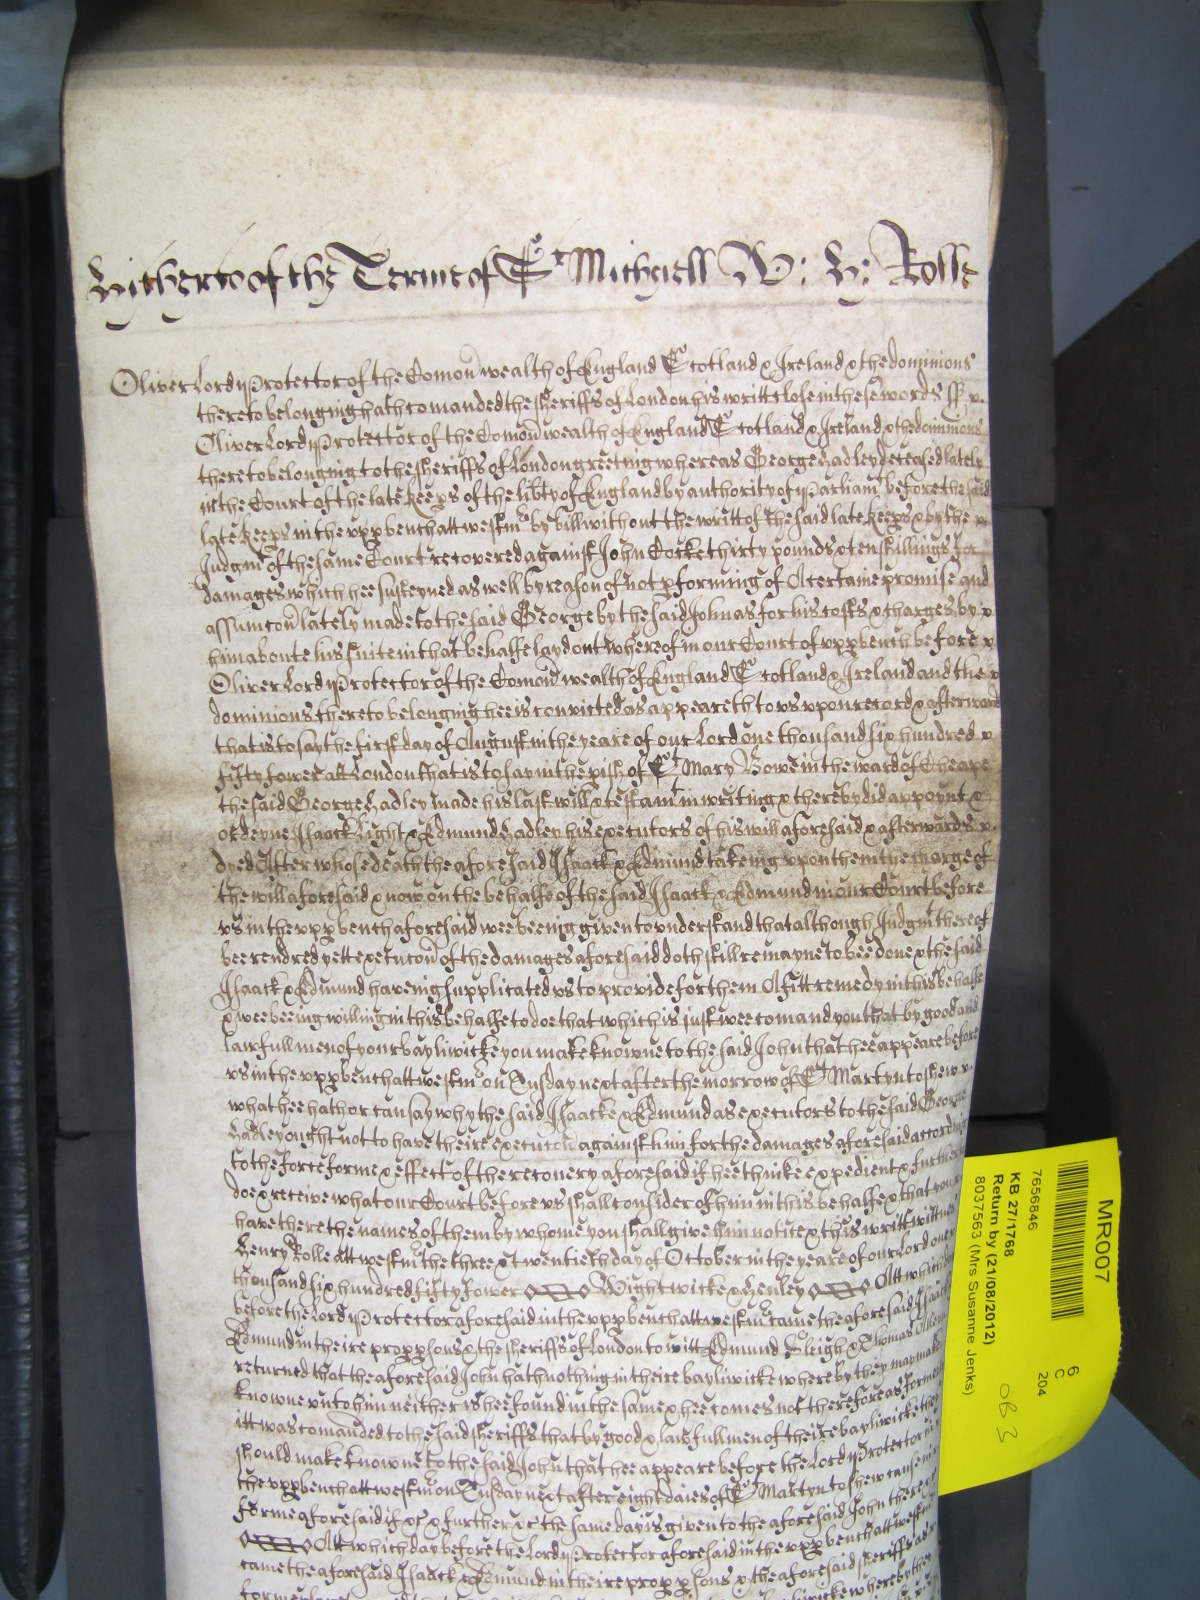 hitherto of the Terme of St Michaell W: H: Rolle
Oliver Lord Protector of the Comon wealth of England Scotland & Ireland & the dominions
thereto belonging hath comanded the sheriffs of London his writt close in these words ss
Oliver Lord Protector of the Comon wealth of England Scotland & Ireland & the dominions
thereto belonging to the sheriffs of London greeting whereas George Hadley deceased lately
in the Court of the late keeps of the libty of England by authority of Parliamt before the said
late keeps in the upp bench att westmr by bill without the writt of the said late keeps & by the
Judgmt of the same Court recovered against John Cocke thirty pounds & ten shillings for
damages which hee susteyned as well by reason of not pforming of A certaine promise and
assumcon lately made to the said George by the said John as for his costs & charges by
him aboute his suite in that behalfe layd out whereof in our Court of upp bench before
Oliver Lord Protector of the Comon wealth of England Scotland & Ireland and the
dominions thereto belonging hee is convicted as appeareth to us upon record & afterward
that is to say the first day of August in the yeare of our Lord one thousand six hundred
fifty fower att London that is to say in the pish of St Mary Bowe in the ward of Cheape
the said George Hadley made his last will & testamt in writing & thereby did appoynt &
ordeyne Isaack Light & Edmund Hadley his executors of his will aforesaid & afterwards
dyed After whose death the aforesaid Isaack & Edmund takeing upon them the charge of
the will aforesaid & now on the behalfe of the said Isaack & Edmund in our Court before
us in the upp bench aforesaid wee beeing given to understand that although Judgmt thereof
bee rendred yett execucon of the damages aforesaid doth still remayne to bee done & the said
Isaack & Edmund haveing supplicated us to provide for them A fitt remedy in this behalfe
& wee beeing willing in this behalfe to doe that which is just wee comand you that by good and
lawfull men of your bayliwicke you make knowne to the said John that hee appeare before
us in the upp bench att westmr on Tusday next after the morrow of St Martyn to shew
what hee hath or can say why the said Isaacke & Edmund as executors to the said George
Hadley ought not to have theire execucon against him for the damages aforesaid according
to the force forme & effect of the recovery aforesaid if hee thinke expedient & further
doe & receive what our Court before us shall consider of him in this behalfe & that you
have there the names of them by whome you shall give him notice & this writt wittnes
Henry Rolle att westmr the three & twentieth day of October in the yeare of our Lord one
thousand six hundred fifty fower Wightwicke & Henley Att which day
before the Lord Protector aforesaid in the upp bench att westmr came the aforesaid Isaack
Edmund in theire prop psons & the sheriffs of London to witt Edmund Sleigh & Thomas
returned that the aforesaid John hath nothing in theire bayliwicke whereby they may make
knowne unto him neither is hee found in the same & hee comes not therefore as formerly
itt was comanded to the said sheriffs that by good & lawfull men of theire bayliwicke they
should make knowne to the said John that hee appeare before the Lord Protector in
the upp bench att westmr on Tusday next after eight daies of St Martyn to shew cause in
forme aforesaid if &c & further &c the same day is given to the aforesaid John there
Att which day before the Lord Protector aforesaid in the upp bench att westmr
came the aforesaid Isaack & Edmund in theire prop psons & the aforesaid sheriffs as
MR007
7656846
6
C
204
KB 27/1768
Return by (21/08/2012)
8037563 (Mrs Susanne Jenks)
OB 3